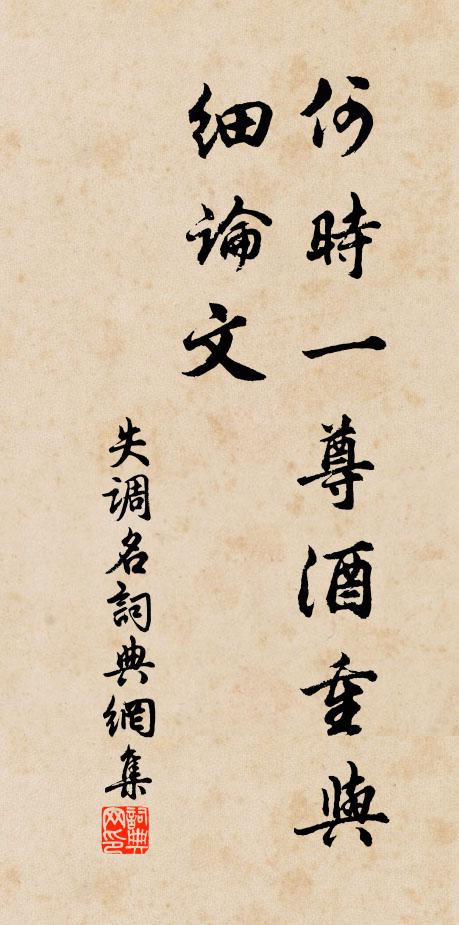 何時一尊酒重與
細論文
失調名詞典網集
詞典网印